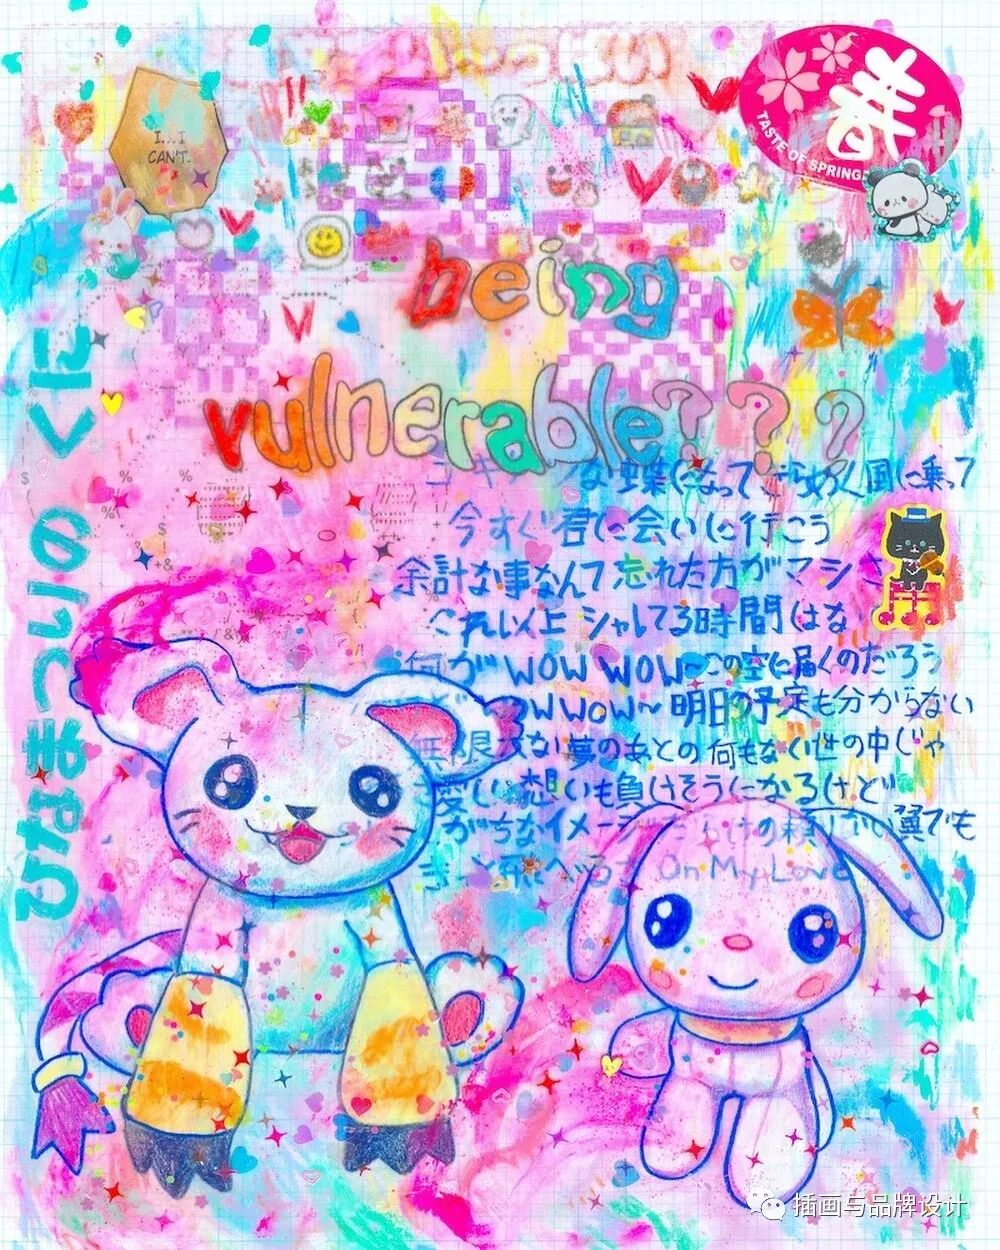 春
TASTE OF SPRING
I...I
CAN'T.
being
vulnerable???
ひなまつりのくに
な蝶になって きらめく風に乗って
今すぐ 君に会いに行こう
余計な事なんて 忘れた方がマシさ
これ以上 シャレてる時間はな
何が WOW WOW~この空に届くのだろう
WOW WOW~ 明日の予定も分からない
無限大な夢のあとの 何もない世の中じゃ
愛しい想いも負けそうになるけど
がちなイメージだらけの頼りない翼でも
きっと飛べるさ On My Love
插画与品牌设计